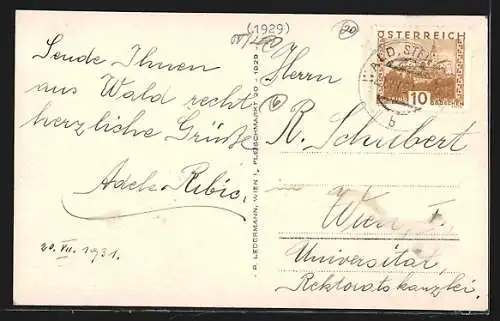 (1929)
20
Sende Ihnen
aus Wald recht
herzliche Grüße
Adele Ribic.
20. VII. 1931.
P. LEDERMANN, WIEN I., FLEISCHMARKT 20 - 1929 -
6
ÖSTERREICH
10
GROSCHEN
WALD,
b
Herrn
R. Schubert
in
Wien I.
Universität,
Rektoratskanzlei.